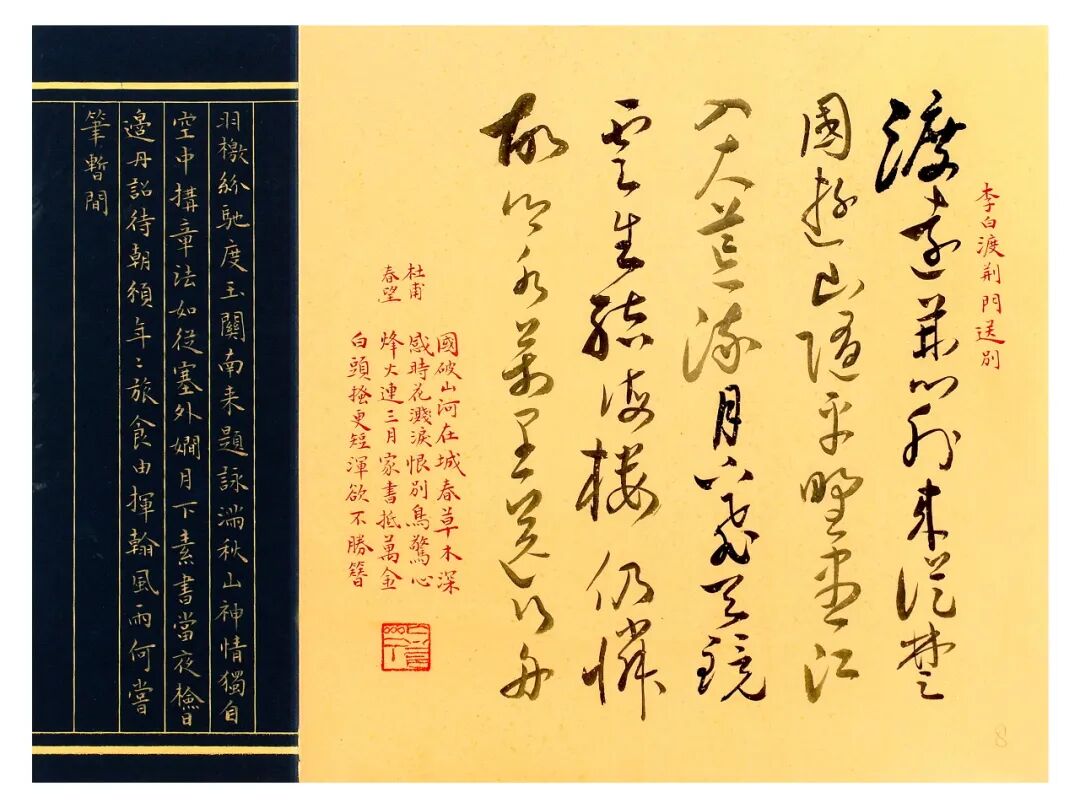 李白渡荆門送別
渡遠荊門外來從楚
國遊山隨平野盡江
入大荒流月下飛天鏡
雲生結海樓仍憐
故鄉水萬里送行舟
杜甫
春望
國破山河在城春草木深
感時花濺淚恨別鳥驚心
烽火連三月家書抵萬金
白頭搔更短渾欲不勝簪
羽檄紛馳度玉關南来題詠滿秋山神情獨自
空中搆章法如從塞外嫺月下素書當夜檢日
邊丹詔待朝頒年〻旅食由揮翰風雨何嘗
筆暫間
8